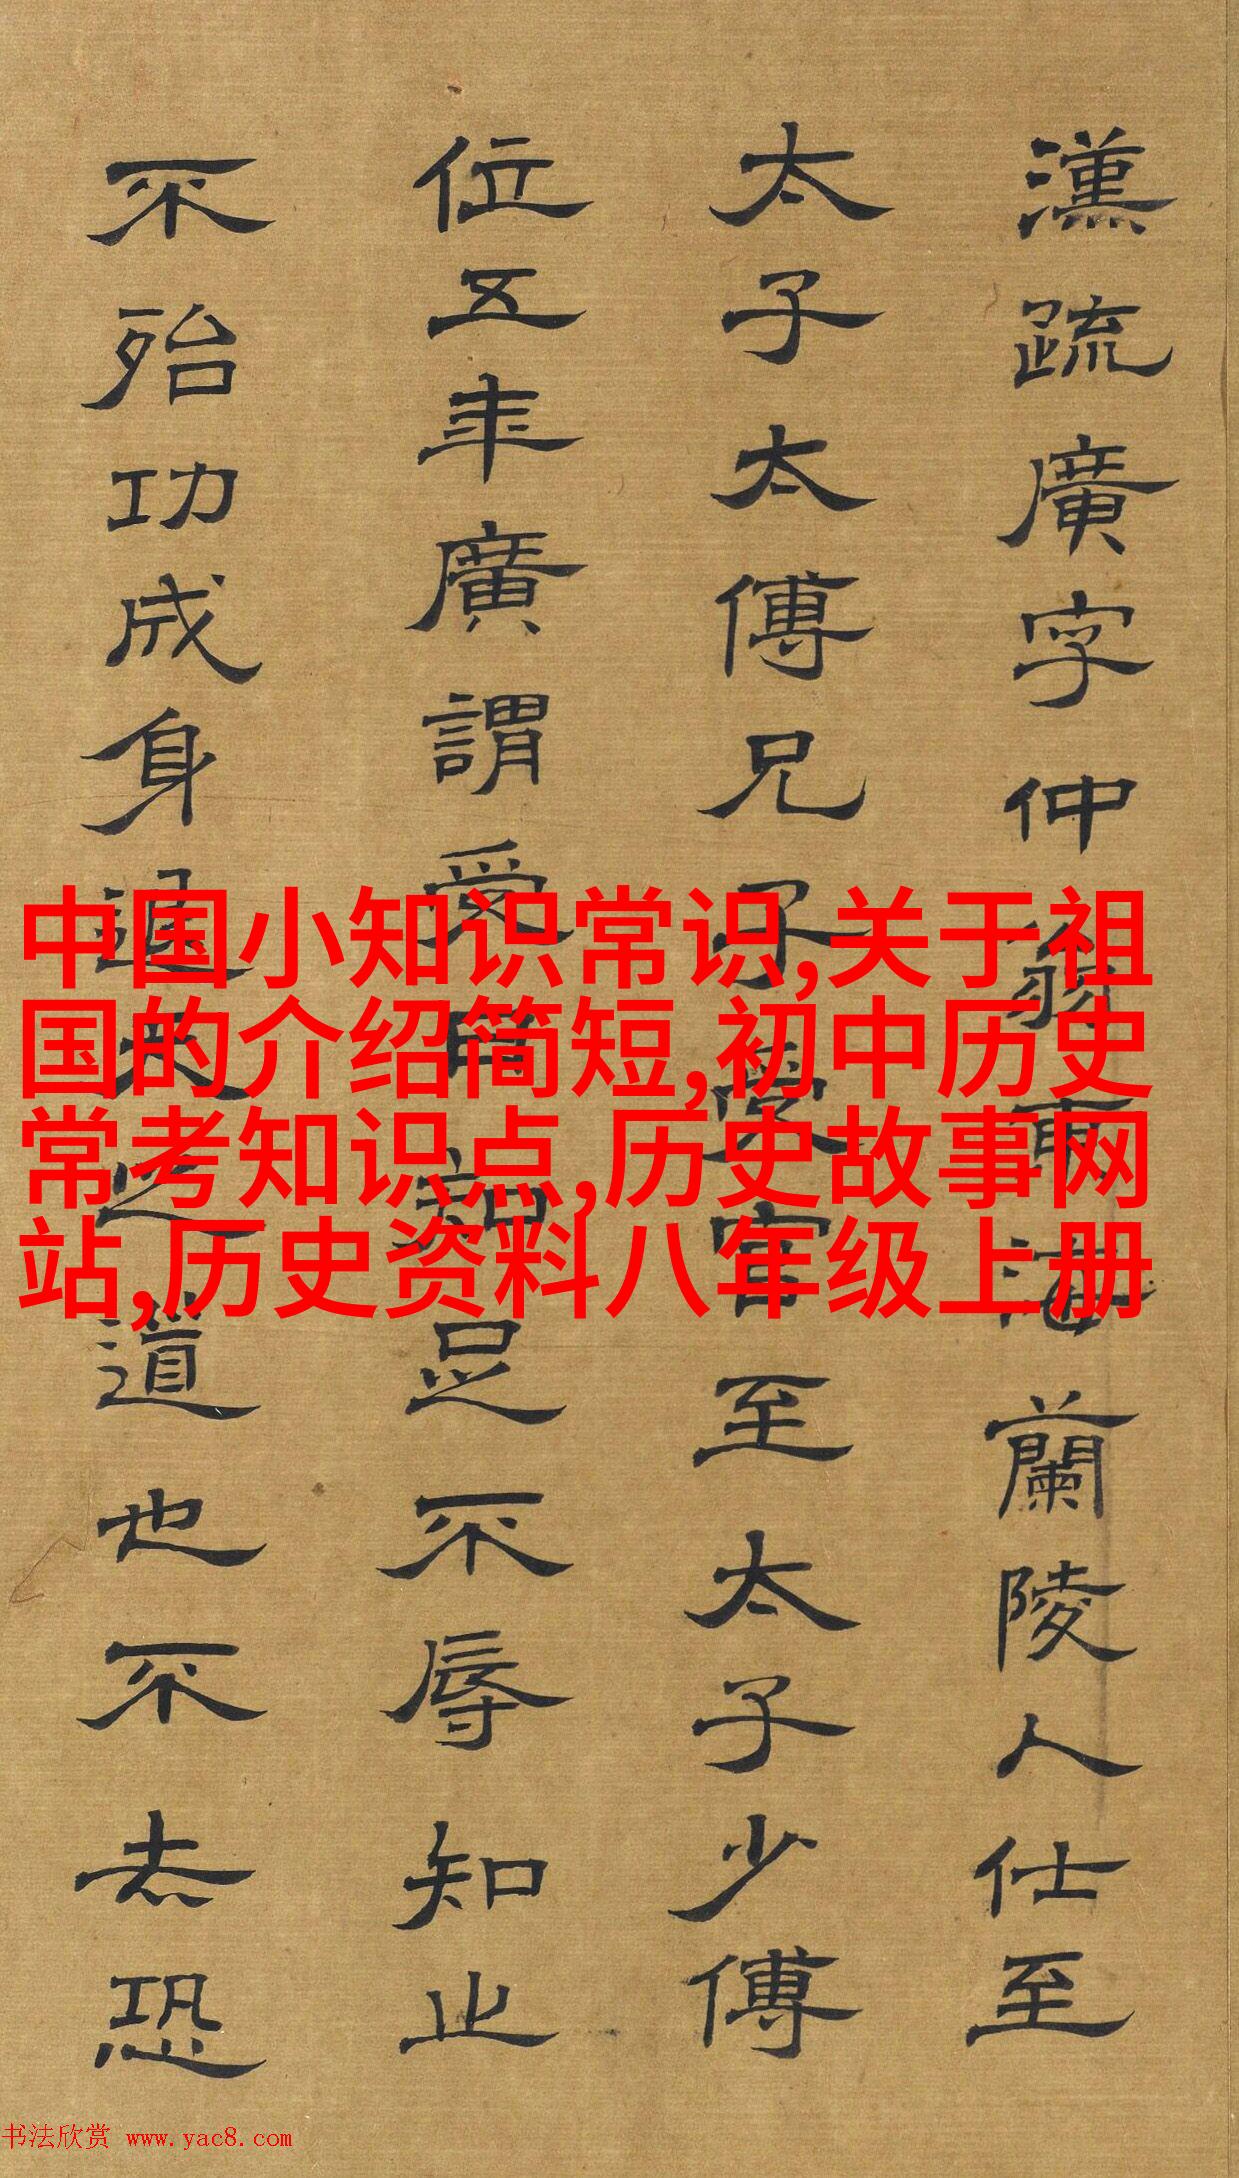 漢疏廣字仲翁東海蘭陵人仕至
太子太傅兄子受官至太子少傅
位五年廣謂受曰知足不辱知止
不殆功成身退天之道也不去恐
中国小知识常识,关于祖
国的介绍简短,初中历史
常考知识点,历史故事网
站,历史资料八年级上册
书法欣赏 www.yac8.com